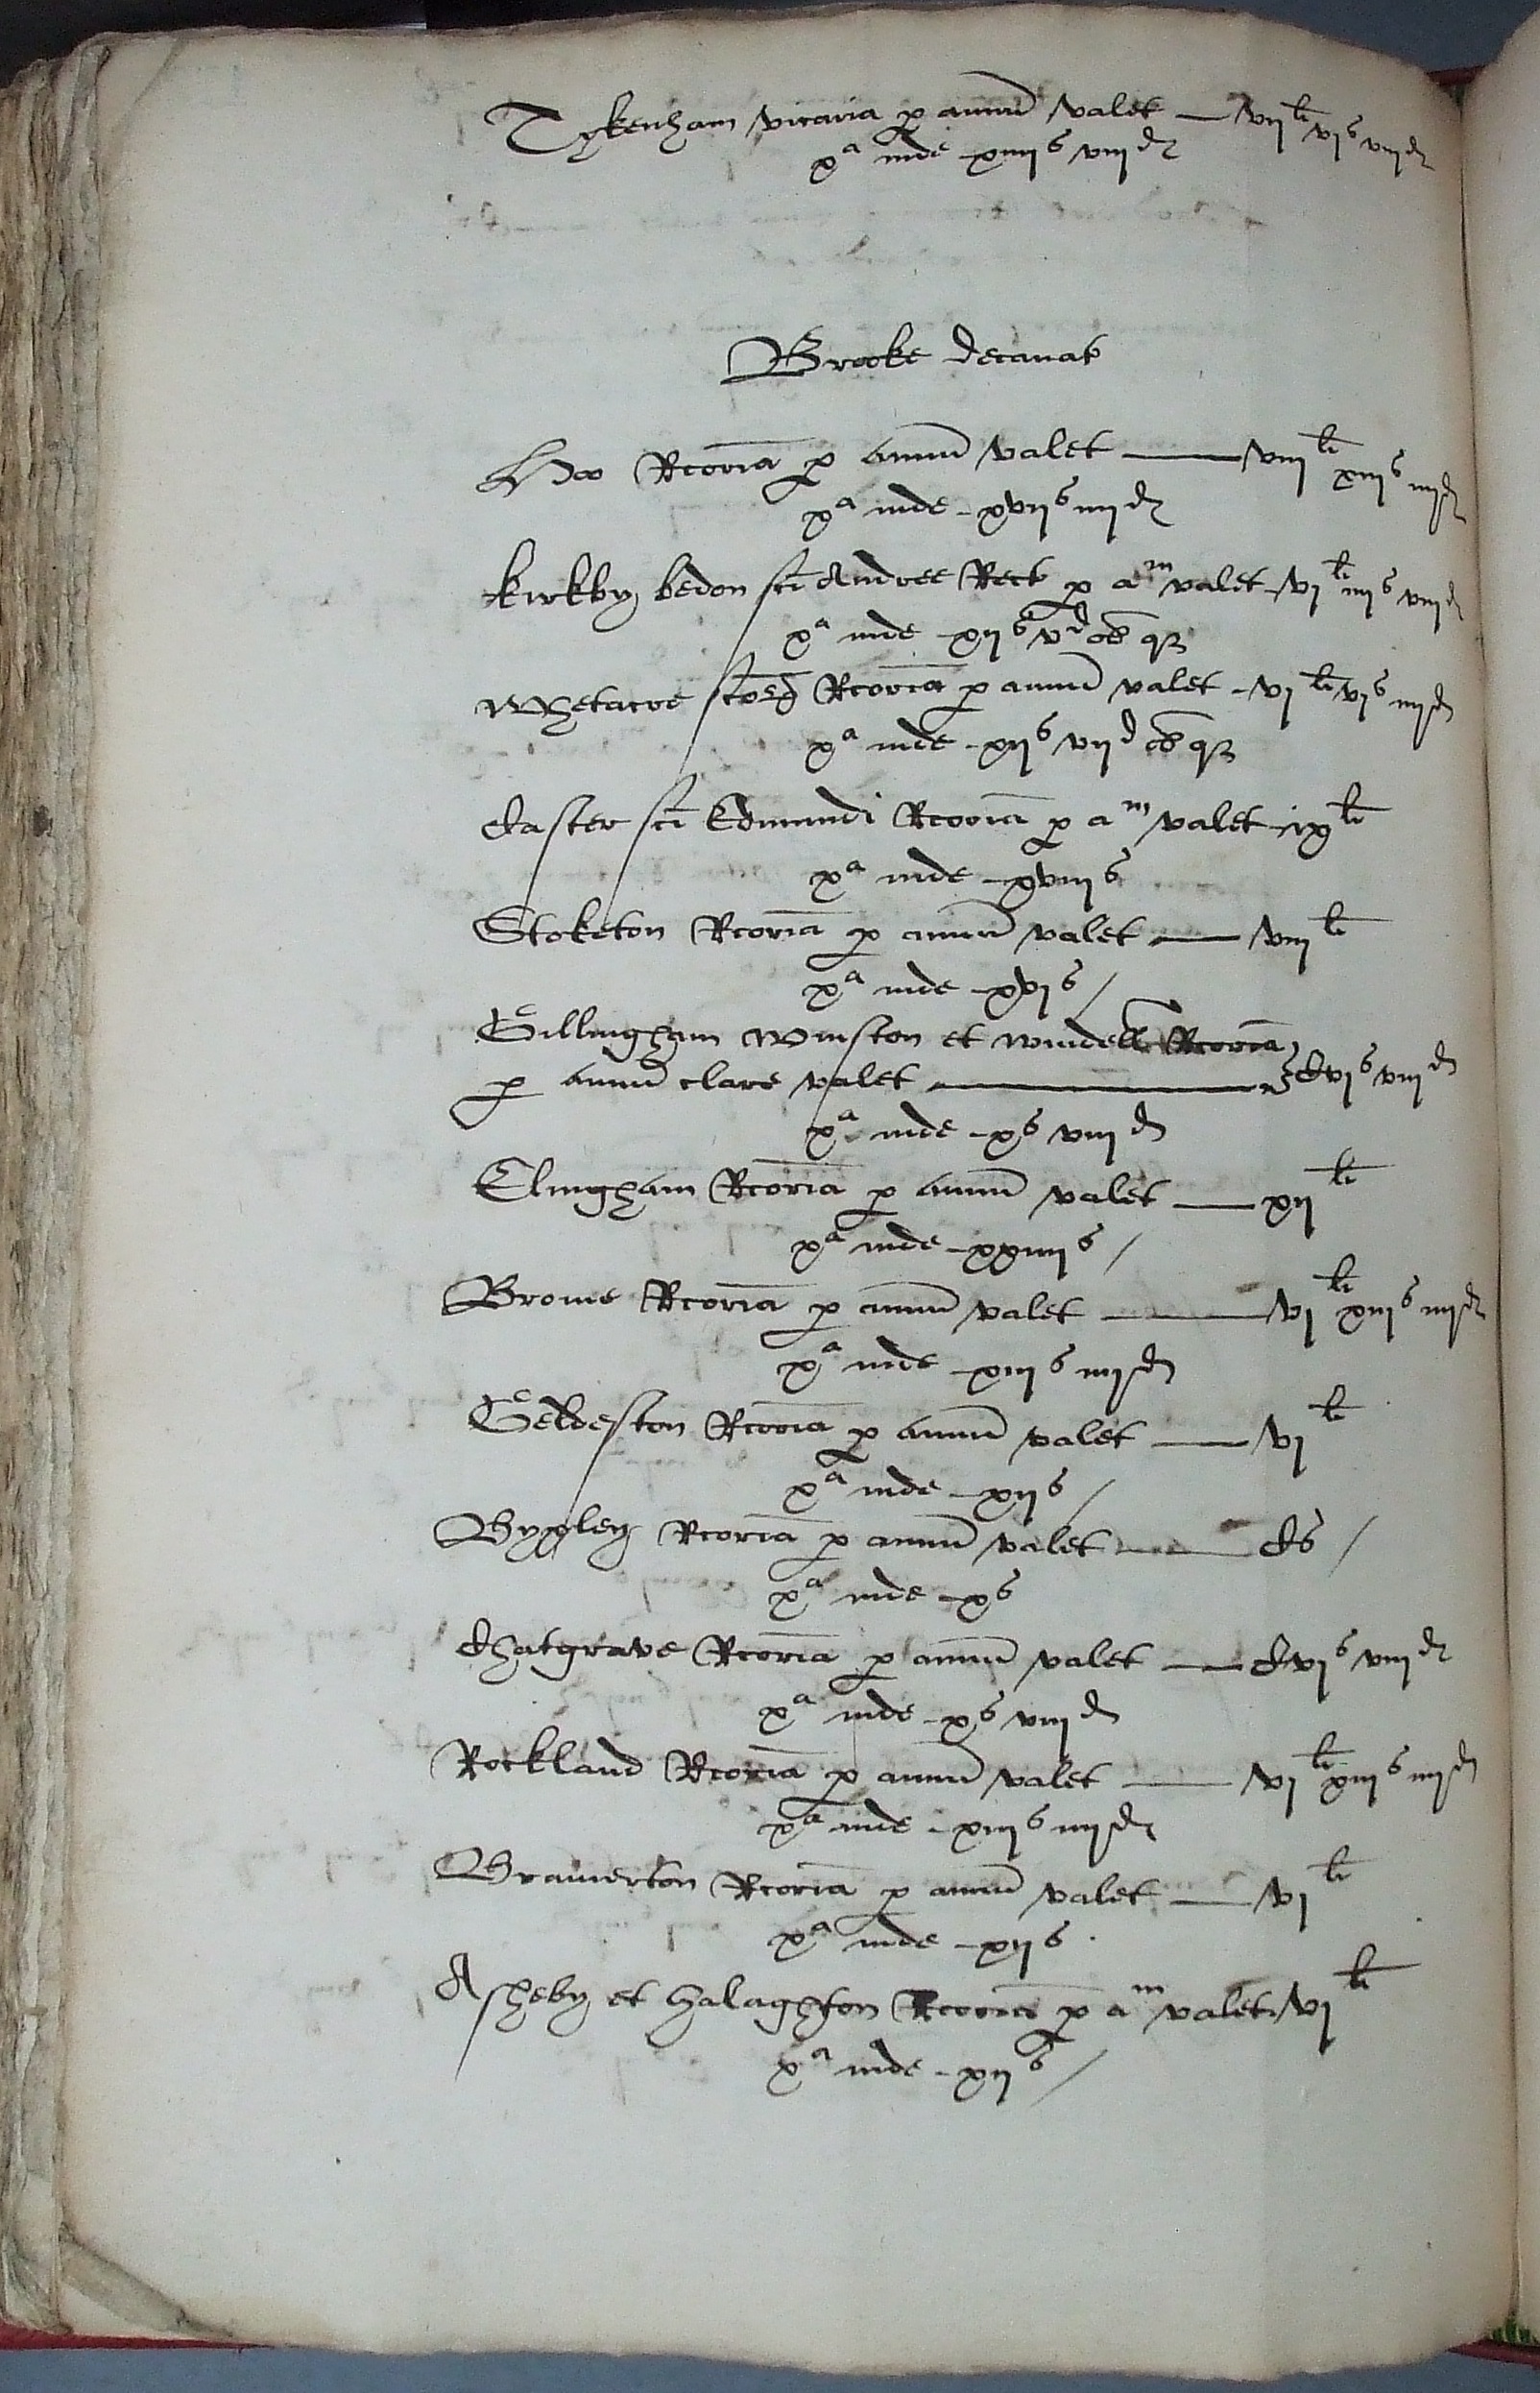 Tykenham vicaria p annu valet — vij li vj s viij d
xa inde - xiiij s viij d
Brooke decanat
Hoo Rcoria p annu valet — viij li xiij s iiij d
xa inde - xvij s iiij d
Kirkby bedon sci Andree Rect p am valet - vj li iiij s viij d
xa inde - xij s v d ob qz
Whetacre Rcoria p annu valet - vj li vj s iiij d
xa inde - xij s vij d ob qz
Caster sci Edmundi Rcoria p am valet - ix li
xa inde - xviij s
Stoketon Rcoria p annu valet — viij li
xa inde - xvj s /
Gillingham Winston et Windell Rcoria
p annu clare valet — Cvj s viij d
xa inde - x s viij d
Elingham Rcoria p annu valet — xij li
xa inde - xxiiij s /
Brome Rcoria p annu valet — vj li xiij s iiij d
xa inde - xiij s iiij d
Geldeston Rcoria p annu valet — vj li
xa inde - xij s /
Byxley Rcoria p annu valet — C s /
xa inde - x s
Chatgrave Rcoria p annu valet — Cvj s viij d
xa inde - x s viij d
Rockland Rcoria p annu valet — vj li xiij s iiij d
xa inde - xiij s iiij d
Bramerton Rcoria p annu valet — vj li
xa inde - xij s
Asheby et halaghton Rcoria p am valet vj li
xa inde - xij s /